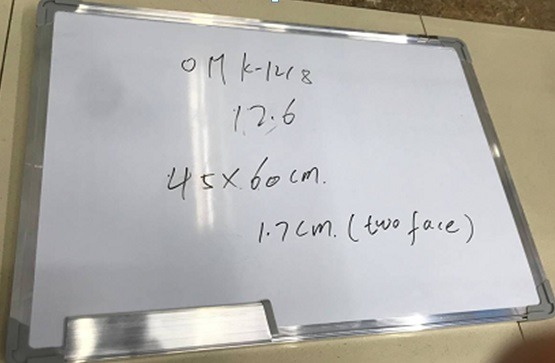 OMK-1218
12.6
45×60cm.
1.7cm. (two face)